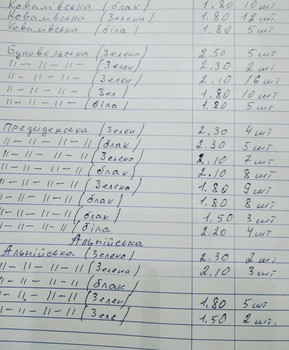 Ковалівська (блак) 1.80 10 шт
Ковалівська (Зелена) 1.80 шт
Ковалівська (біла) 1.80 5 шт
Буковельська (Зелена) 2.50 5 шт
11 — 11 — 11 — (Зелен) 2.30 2 шт
11 — 11 — 11 — (Зелен) 2.10 16 шт
11 — 11 — 11 — (Зел) 1.80 10 шт
11 — 11 — 11 — (біла) 1.80 5 шт
Президенська (Зелен) 2.30 4 шт
11 — 11 — 11 — 11 (блак) 2.30 5 шт
11 — 11 — 11 — 11 (Зелена) 2.10 7 шт
11 — 11 — 11 — 11 (блак) 2.10 8 шт
11 — 11 — 11 — 11 (Зелена) 1.80 9 шт
11 — 11 — 11 — 11 (блак) 1.80 8 шт
11 — 11 — 11 — 11 (блак) 1.50 3 шт
11 — 11 — 11 — 11 (біла) 2.20 4 шт
Альпійська
Альпійська (Зелена) 2.30 2 шт
11 — 11 — 11 — 11 (Зелена) 2.10 3 шт
11 — 11 — 11 — 11 (блак)
11 — 11 — 11 — 11 (Зелен) 1.80 5 шт
11 — 11 — 11 — 11 (Зеле) 1.50 2 шт.